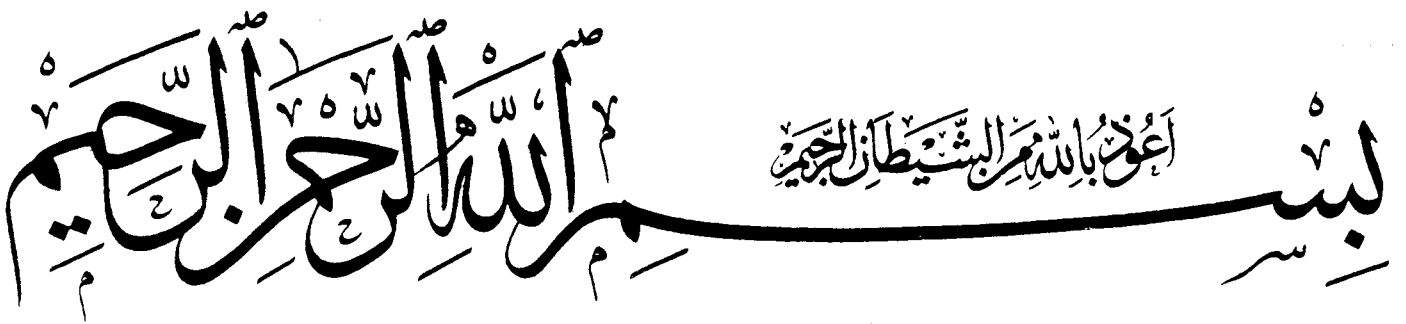 اَعُوْذُ بِاللّٰهِ مِنَ الشَّيْطَانِ الرَّجِيْمِ
بِسْمِ ٱللّٰهِ ٱلرَّحْمٰنِ ٱلرَّحِيْمِ